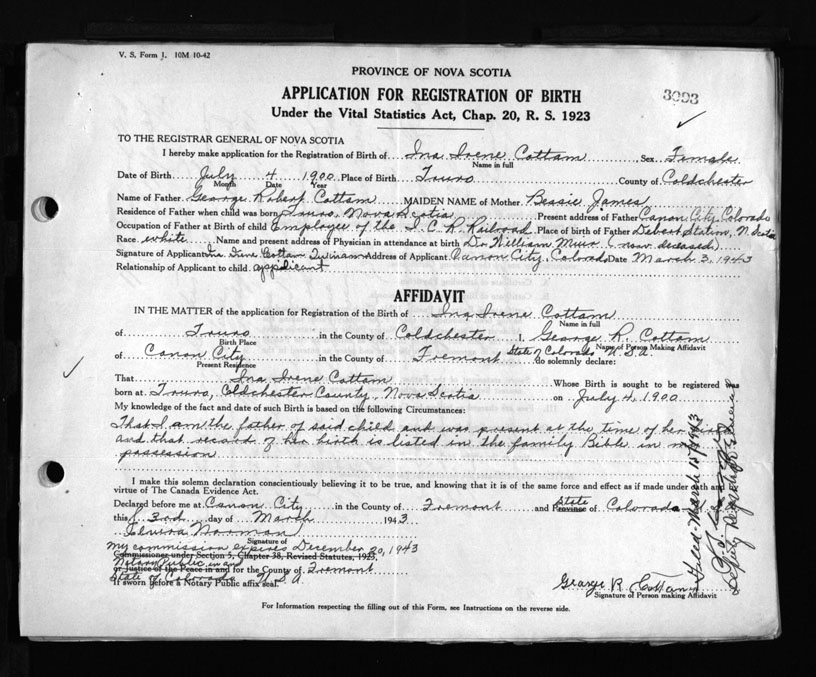 V. S. Form 1. 10M 10-42
PROVINCE OF NOVA SCOTIA
APPLICATION FOR REGISTRATION OF BIRTH
3093
Under the Vital Statistics Act, Chap. 20, R. S. 1923
TO THE REGISTRAR GENERAL OF NOVA SCOTIA
I hereby make application for the Registration of Birth of Ina Irene Cottam Sex Female
Name in full
Date of Birth July 4 1900 Place of Birth Truro County of Coldchester
Month Date Year
Name of Father George Robert Cottam MAIDEN NAME of Mother Bessie James
Residence of Father when child was born Truro, Nova Scotia Present address of Father Canon City, Colorado
Occupation of Father at Birth of child Employee of the I. C. R. Railroad Place of birth of Father Debert Station, N. Scotia
Race white Name and present address of Physician in attendance at birth Dr William Muir (now deceased)
Signature of Applicant Cottam Address of Applicant Canon City, Colorado Date March 3, 1943
Relationship of Applicant to child applicant
AFFIDAVIT
IN THE MATTER of the application for Registration of the Birth of Ina Irene Cottam
Name in full
of Truro in the County of Coldchester I, George R. Cottam
Birth Place Name of Person Making Affidavit
of Canon City in the County of Fremont State of Colorado U.S.A. do solemnly declare:
Present Residence
That Ina Irene Cottam Whose Birth is sought to be registered was
born at Truro, Coldchester County, Nova Scotia on July 4, 1900
My knowledge of the fact and date of such Birth is based on the following Circumstances:
That I am the father of said child and was present at the time of her birth
and that record of her birth is listed in the family Bible in my
possession
I make this solemn declaration conscientiously believing it to be true, and knowing that it is of the same force and effect as if made under oath and
virtue of The Canada Evidence Act.
Declared before me at Canon City in the County of Fremont and Province of State Colorado
this 3rd day of March 1943
Elvera Norman
Signature of
My commission expires December 20, 1943
Commissioner under Section 5, Chapter 38, Revised Statutes, 1923,
Notary Public in and
or Justice of the Peace in and for the County of Fremont
State of Colorado U.S.A.
If sworn before a Notary Public affix seal.
George R. Cottam
Signature of Person making Affidavit
For Information respecting the filling out of this Form, see Instructions on the reverse side.
Filed March 1943
Deputy Registrar General